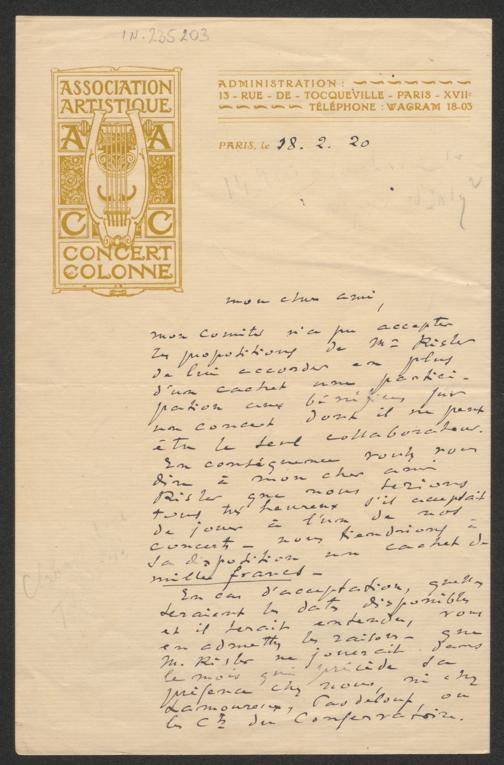 IN. 235203
ASSOCIATION
ARTISTIQUE
A A
C C
CONCERT
COLONNE
ADMINISTRATION :
13 - RUE - DE - TOCQUEVILLE - PARIS - XVIIe
TÉLÉPHONE : WAGRAM 18-03
PARIS, le 18. 2. 20
mon cher ami,
mon Comité n'a pu accepter
les propositions de Mr Risler
de lui accorder en plus
d'un cachet une partici-
pation aux bénéfices sur
un concert dont il ne peut
être le seul collaborateur.
En conséquence voulez vous
dire à mon cher ami
Risler que nous serions
tous très heureux s'il acceptait
de jouer à l'un de nos
concerts - nous tiendrions à
sa disposition un cachet de
mille francs -
En cas d'acceptation, quelles
seraient les dates disponibles
et il serait entendu, vous
en admettez les raisons - que
M. Risler ne jouerait dans
le mois qui précède sa
présence chez nous, ni chez
Lamoureux, Pasdeloup ou
les Cts du Conservatoire.